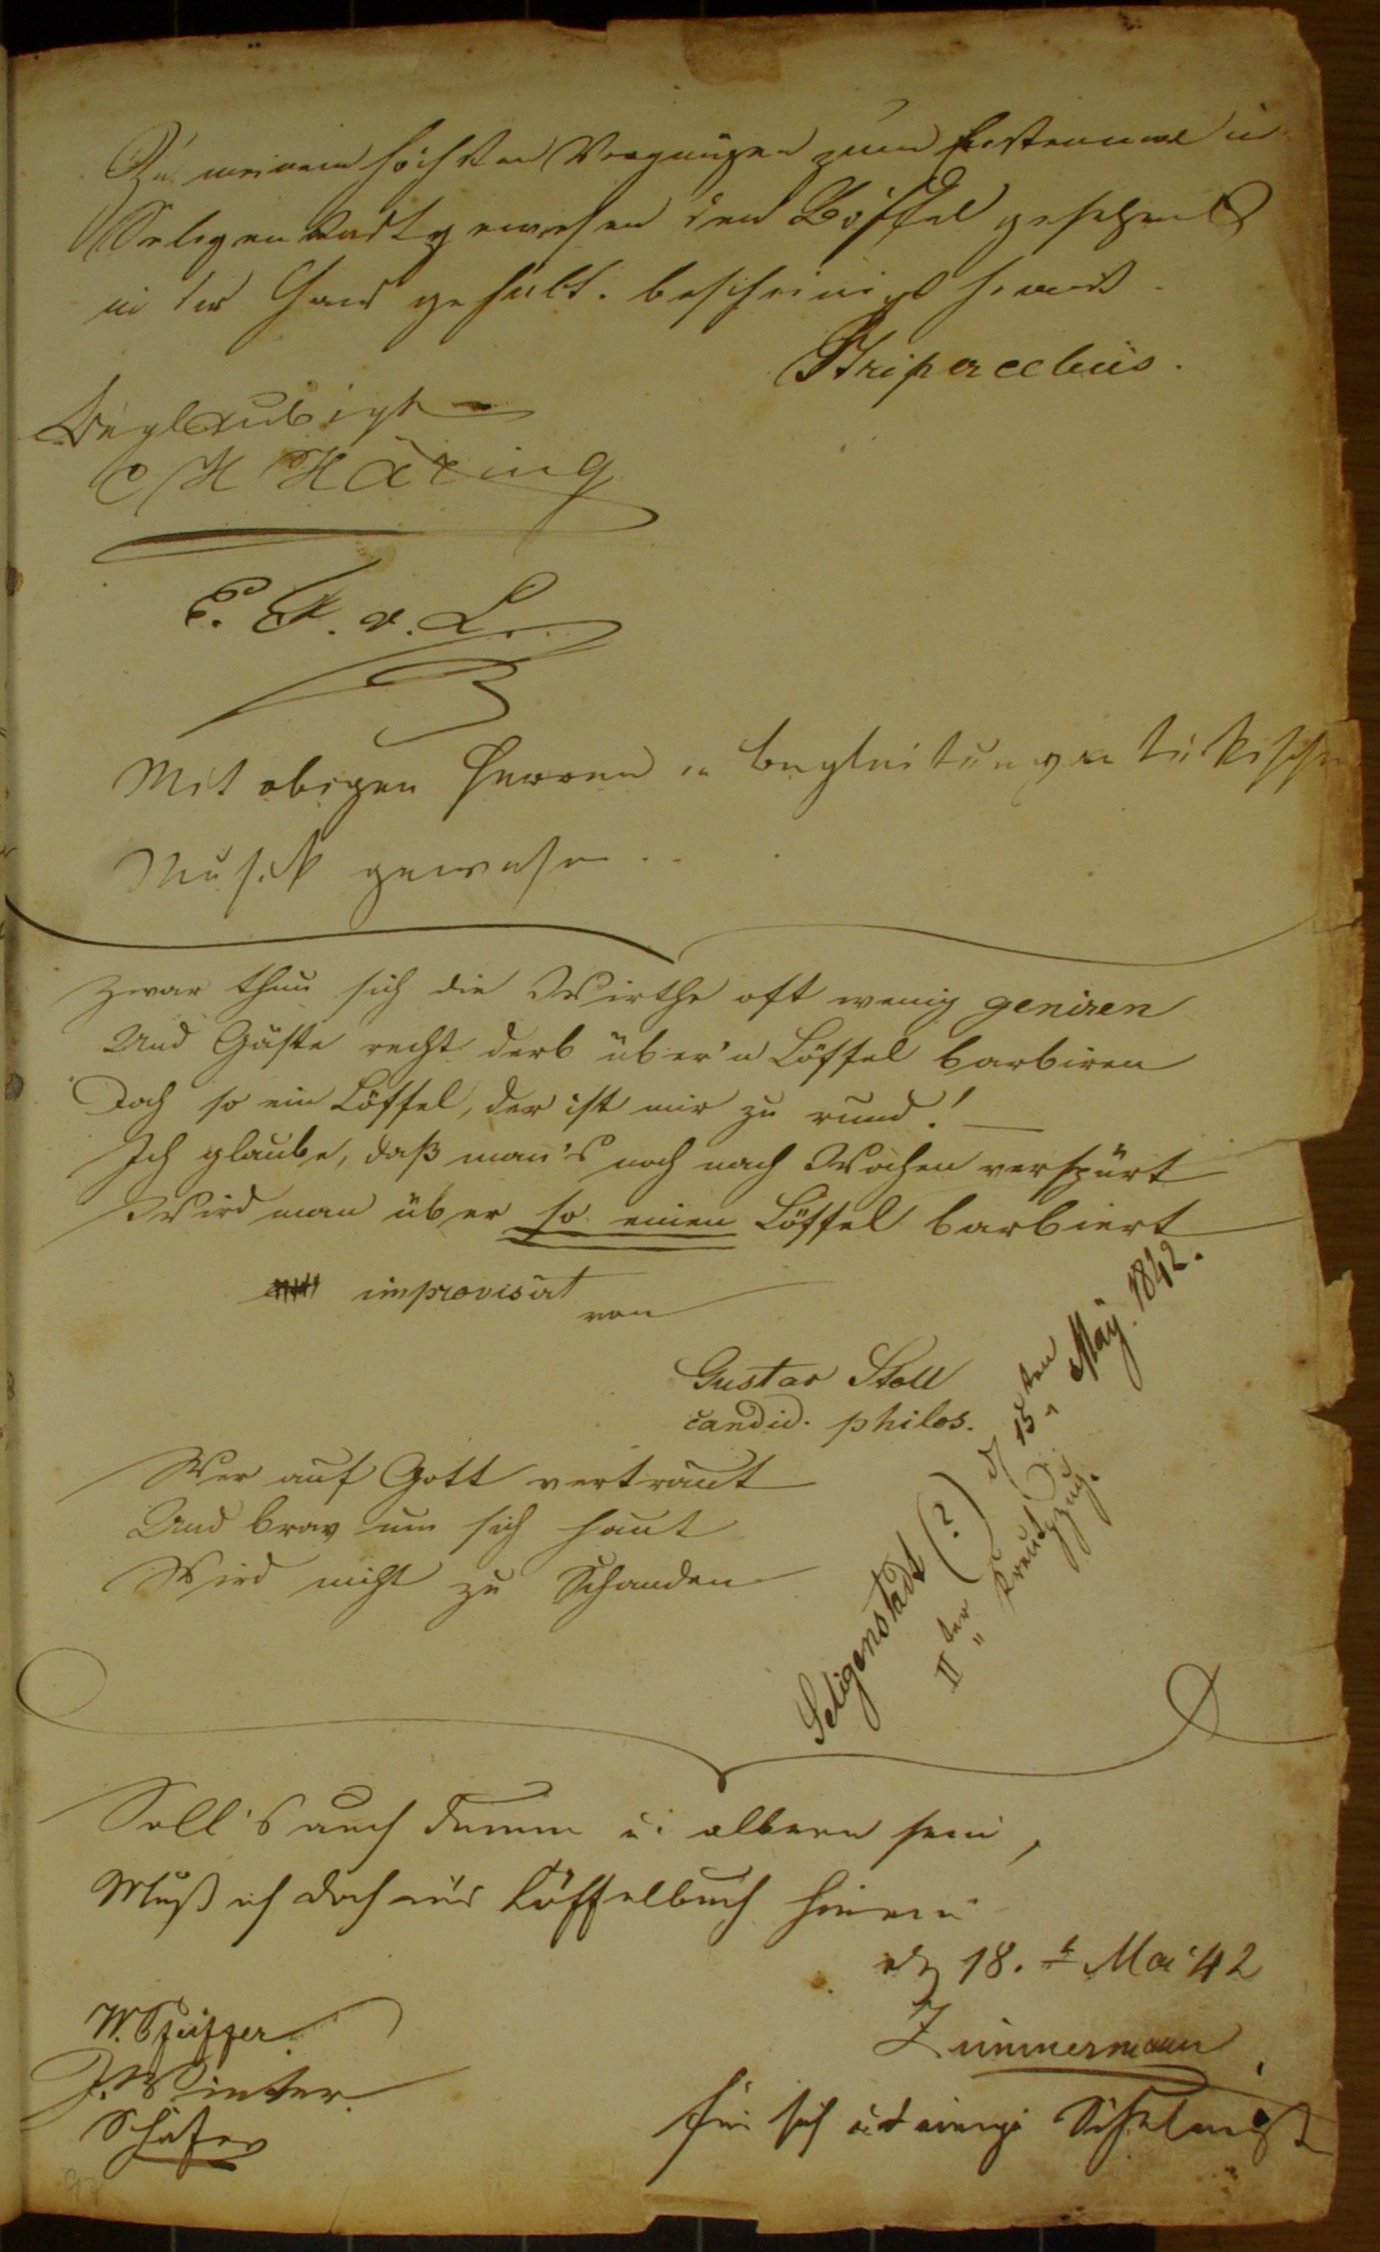 Zu meinem höchsten Vergnügen zum Erstenmal in
Seligenstadt gewesen den Löffel gesehen &
in der Hand gehabt. bescheinigt hiermit.
Beglaubigt
C H Häring
Mit obigen Herren in Begleitung
Musik gewesen ..
Zwar thun sich die Wirthe oft wenig geniren
Und Gäste recht derb über'n Löffel barbiren
Doch so ein Löffel, der ist mir zu rund! —
Ich glaube, daß man's noch nach Wochen verspürt
Wird man über so einen Löffel barbiert
improvisirt von
Gustav Stoll
candid. philos.
Seligenstadt (?) d 15ten May. 1842.
IIter Kreutzzug.
Wer auf Gott vertraut
Und brav um sich haut
Wird nicht zu Schanden
Soll's auch dumm u. albern sein,
Muß ich doch ins Löffelbuch hinein
18. t Mai 42
Zimmermann
für sich und einige
W. Pfeiffer
J. Winter
Schäfer